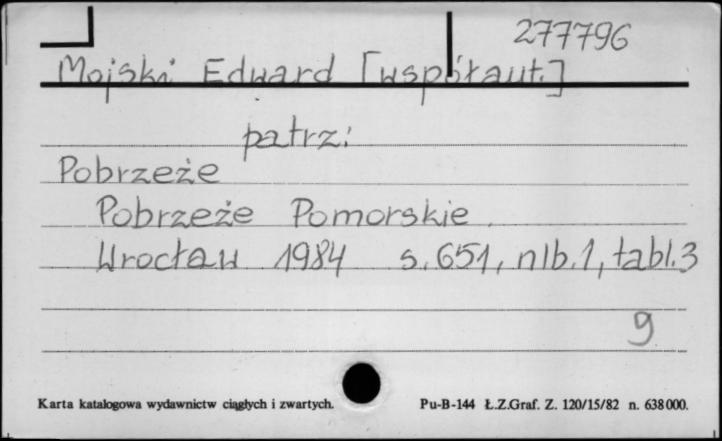 277796
Mojski Eduard [współaut.]
patrz:
Pobrzeże
Pobrzeże Pomorskie.
Wrocław 1984 s. 651, nlb. 1, tabl. 3
9
Karta katalogowa wydawnictw ciągłych i zwartych. Pu-B-144 Ł.Z.Graf. Z. 120/15/82 n. 638000.